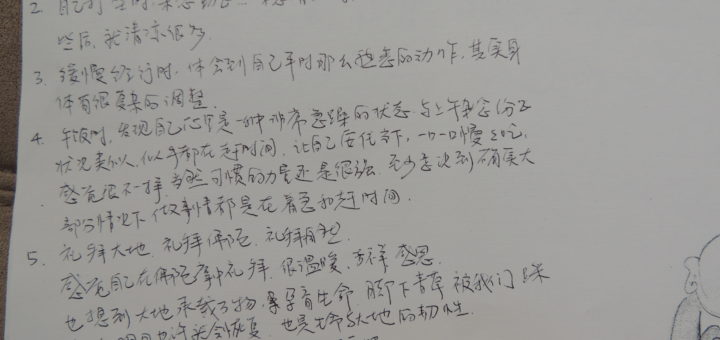 2. 自己打坐时,杂念
些后,就清凉很多.
3. 缓慢经行时,体会到自己平时那么熟悉的动作,其实身
体有很复杂的调整.
4. 午饭时,发现自己心里是一种非常急躁的状态,与上午杂念纷飞
状况类似,似乎都在赶时间,让自己安住当下,一口一口慢慢吃,
感觉很不一样,当然习惯的力量还是很强,至少意识到确实大
部分情况下做事情都是在着急和赶时间.
5. 礼拜大地,礼拜佛陀,礼拜自性.
感觉自己在佛陀掌中礼拜,很温暖,吉祥,感恩.
也想到大地承载万物,孕育生命,脚下青草被我们踩
也许就会恢复,也是大地的韧性.